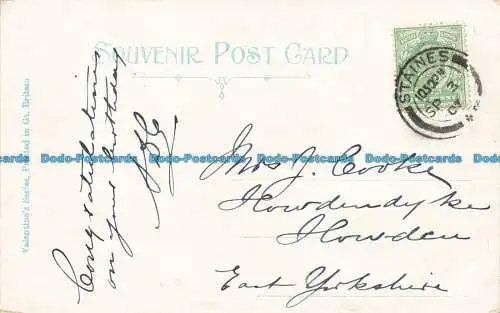 SOUVENIR POST CARD
Congratulations
on your birthday
Mrs J. Cooke
Howdendyke
Howden
East Yorkshire
STAINES
SP 3
07
Valentine's Series, Printed in Gt. Britain
Dodo-Postcards Dodo-Postcards Dodo-Postcards Dodo-Postcards Dodo-Postcards